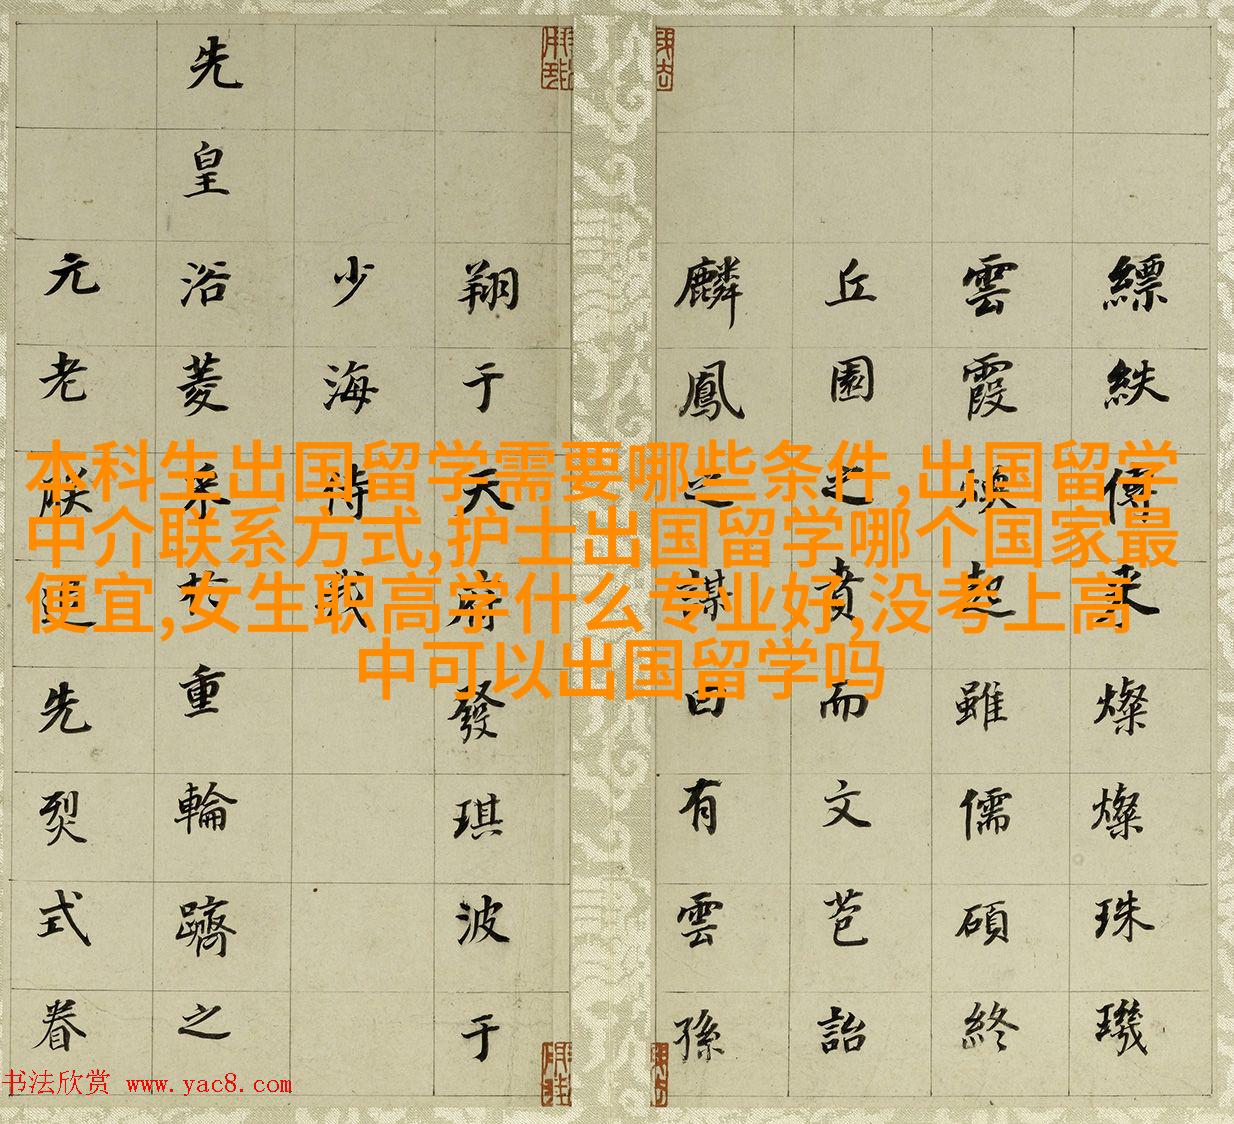 縹紩傳來燦燦珠璣
雲霞煥起雖儒碩終
丘園之賁而文苞詒
麟鳳之謀曰有雲孫
翔于天府發琪波于
少海侍我
先皇浴菱重輪躋之
元老先烈式眷
本科生出国留学需要哪些条件,出国留学
中介联系方式,护士出国留学哪个国家最
便宜,女生职高学什么专业好,没考上高
中可以出国留学吗
书法欣赏 www.yac8.com